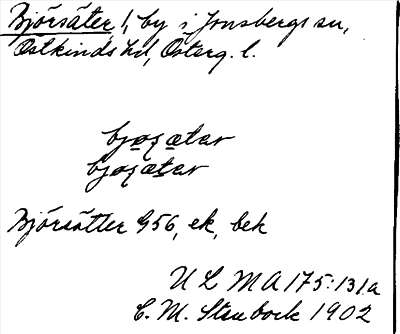 Björsäter 1, by i Jonsbergs sn,
Östkinds hd, Österg. l.
bjøʂætər
bjøʂætər
Björsätter G56, ek, bek
ULMA 175:131.a
C. M. Stenbock 1902